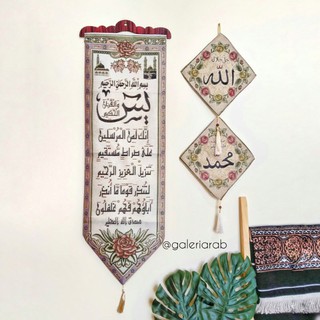 بسم الله الرحمن الرحيم
يس
والقرآن
الحكيم
إنك لمن المرسلين
على صراط مستقيم
تنزيل العزيز الرحيم
لتنذر قوما ما أنذر
آباؤهم فهم غافلون
الله
محمد
@galeriarab